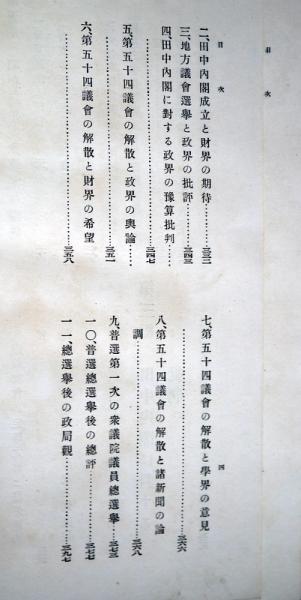 目次
目次
二、田中內閣成立と財界の期待……三三二
三、地方議會選擧と政界の批評……三四三
四、田中內閣に對する政界の豫算批判…
……三四七
五、第五十四議會の解散と政界の輿論…
……三五一
六、第五十四議會の解散と財界の希望
……三五八
四
七、第五十四議會の解散と學界の意見
……三六六
八、第五十四議會の解散と諸新聞の論
調……三六八
九、普選第一次の衆議院議員總選擧…三七三
一〇、普選總選擧後の總評……三七七
一一、總選擧後の政局觀……三九七